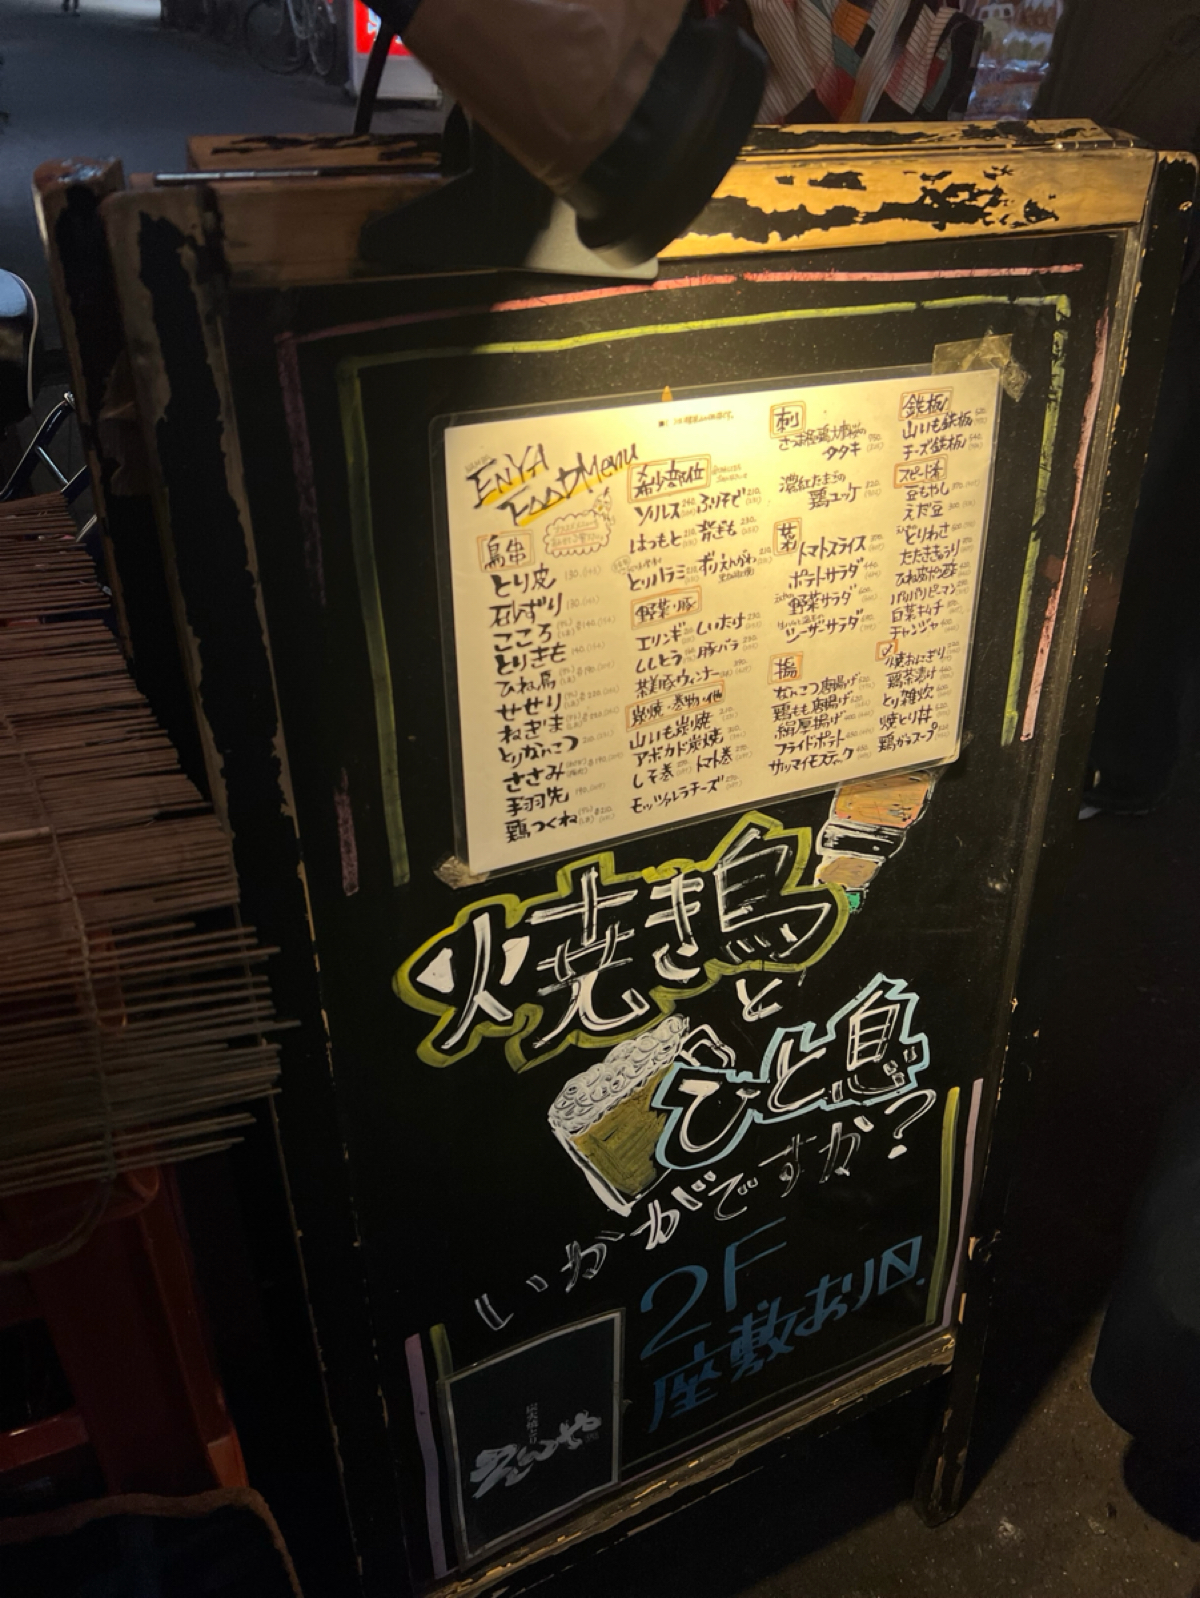 ENYA
FOOD MENU
鳥串
とり皮 130
石ずり 130
こころ
とりきも
ひね鳥
せせり
ねぎま
とりなんこつ
ささみ
手羽先
鶏つくね
希少部位
ソリレス ふりそで
はつもと 背ぎも
とりハラミ ずりえんがわ
野菜・豚
エリンギ しいたけ
ししとう 豚バラ
茶美豚ウィンナー
炭焼・巻物・他
山いも炭焼
アボカド炭焼
しそ巻 トマト巻
モッツァレラチーズ
刺
タタキ
濃紅たまごの
鶏ユッケ
菜
トマトスライス
ポテトサラダ
野菜サラダ
シーザーサラダ
揚
なんこつ唐揚げ
鶏もも唐揚げ
絹厚揚げ
フライドポテト
サツマイモスティック
鉄板
山いも鉄板
チーズ鉄板
スピード系
豆もやし
えだ豆
とりわさ
たたききゅうり
ひね鳥ポン酢
パリパリピーマン
白菜キムチ
チャンジャ
〆
焼おにぎり
鶏茶漬け
とり雑炊
焼とり丼
鶏がらスープ
焼き鳥
と
ひと息
いかがですか?
2F
座敷あり〼.
炭火焼とり
えんや